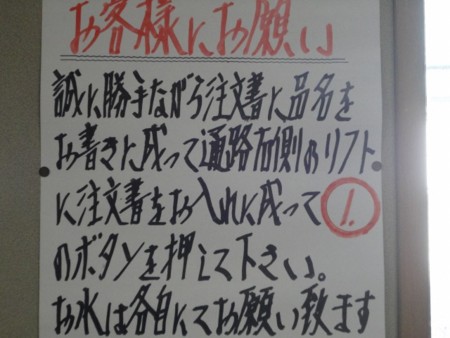 お客様にお願い
誠に勝手ながら注文書に品名を
お書きに成って通路右側のリフト
に注文書をお入れに成って①.
のボタンを押して下さい。
お水は各自にてお願い致ます